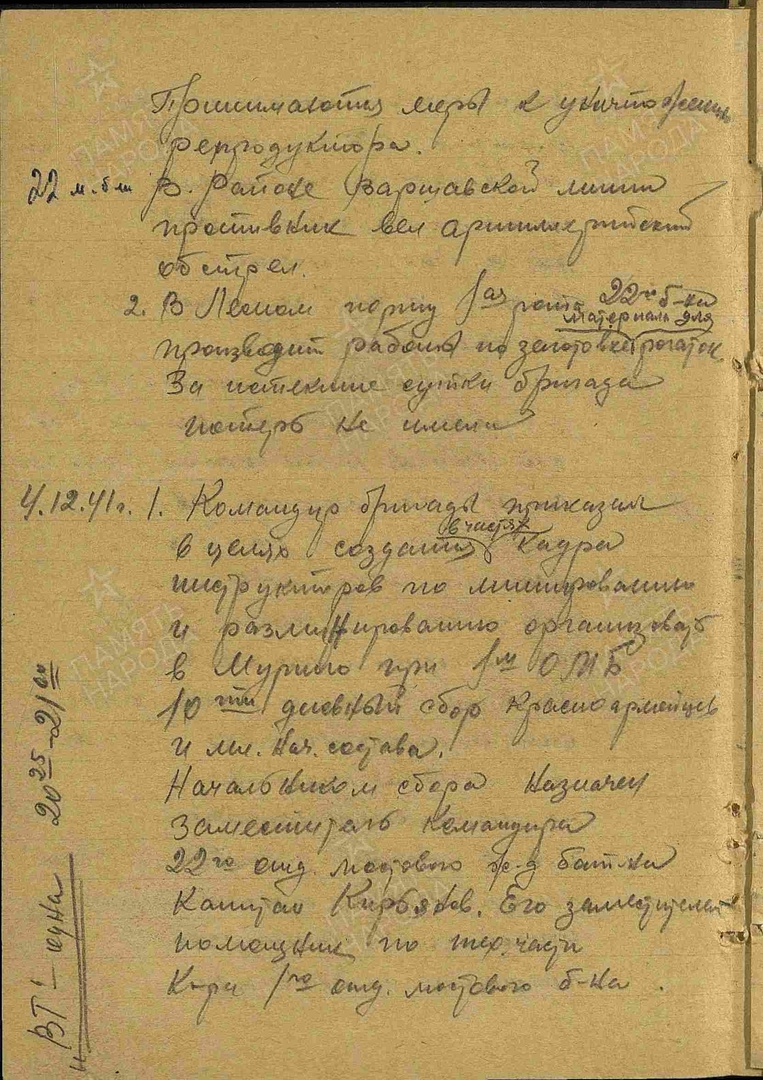 Принимаются меры к уничтожению
репродуктора.
22 м.б-н В. Районе Варшавской линии
противник вел артиллерийский
обстрел.
2. В Лесном порту 1ая рота 22го б-на
материала для
производит работы по заготовке рогаток
За истекшие сутки бригада
потерь не имела
4.12.41г. 1. Командир бригады приказал
в частях
в целях создания кадра
инструкторов по минированию
и разминированию организовать
в Мурино при 1м ОМБ
10ти дневный сбор Красноармейцев
и мл. нач. состава.
Начальником сбора назначен
Заместитель Командира
22го отд. мостового ж-д бат-на
Капитан Кирбяков. Его заместителем
помощник по тех. части
К-ра 1го отд. мостового б-на.
ВТ - 20 25 - 21 00
ПАМЯТЬ НАРОДА